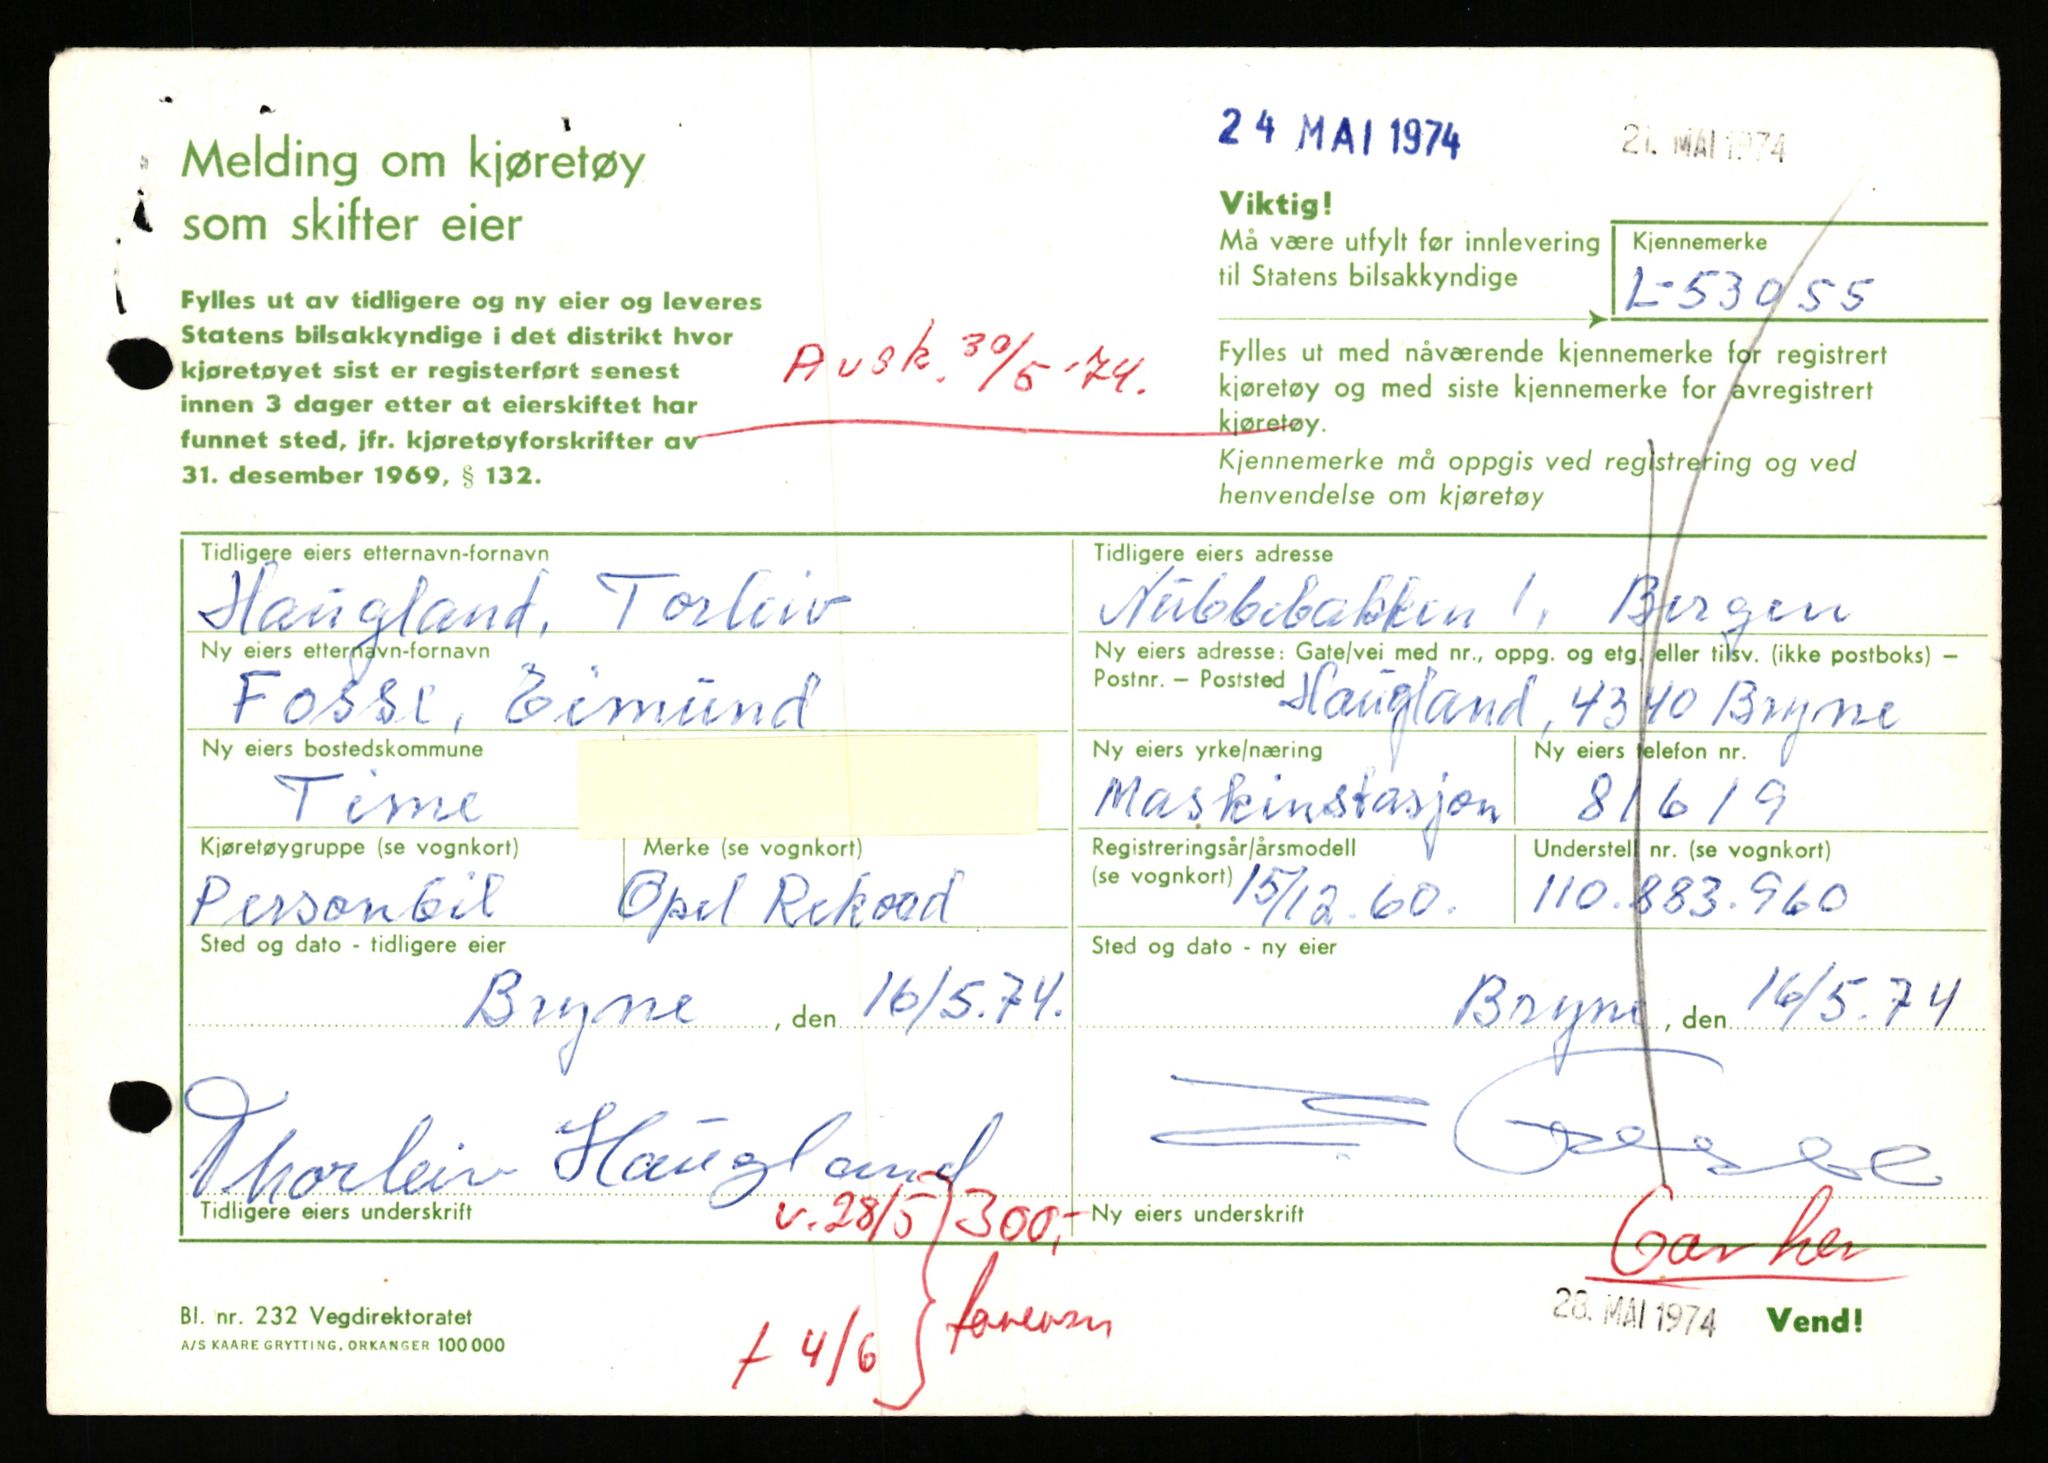 24 MAI 1974
21. MAI 1974
Melding om kjøretøy
som skifter eier
Viktig!
Må være utfylt før innlevering
til Statens bilsakkyndige
Kjennemerke
L-53055
Fylles ut av tidligere og ny eier og leveres
Statens bilsakkyndige i det distrikt hvor
kjøretøyet sist er registerført senest
innen 3 dager etter at eierskiftet har
funnet sted, jfr. kjøretøyforskrifter av
31. desember 1969, § 132.
Avsk. 30/5-74.
Fylles ut med nåværende kjennemerke for registrert
kjøretøy og med siste kjennemerke for avregistrert
kjøretøy.
Kjennemerke må oppgis ved registrering og ved
henvendelse om kjøretøy
Tidligere eiers etternavn-fornavn
Haugland, Torleiv
Tidligere eiers adresse
Nubbebakken 1, Bergen
Ny eiers etternavn-fornavn
Fosse, Eimund
Ny eiers adresse: Gate/vei med nr., oppg. og etg. eller tilsv. (ikke postboks) –
Postnr. – Poststed Haugland, 4340 Bryne
Ny eiers bostedskommune
Time
Ny eiers yrke/næring
Maskinstasjon
Ny eiers telefon nr.
81619
Kjøretøygruppe (se vognkort)
Personbil
Merke (se vognkort)
Opel Rekord
Registreringsår/årsmodell
(se vognkort) 15/12.60.
Understell nr. (se vognkort)
110.883.960
Sted og dato - tidligere eier
Bryne, den 16/5.74.
Sted og dato - ny eier
Bryne, den 16/5.74
Thorleiv Haugland
Tidligere eiers underskrift
Fosse
Ny eiers underskrift
v. 28/5 } 300,-
+ 4/6
28. MAI 1974
Vend!
Bl. nr. 232 Vegdirektoratet
A/S KAARE GRYTTING, ORKANGER 100 000